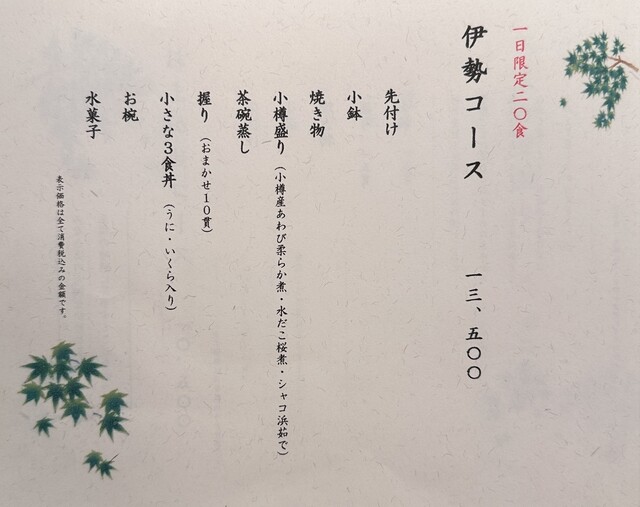 一日限定二〇食
伊勢コース　一三、五〇〇
先付け
小鉢
焼き物
小樽盛り（小樽産あわび柔らか煮・水だこ桜煮・シャコ浜茹で）
茶碗蒸し
握り（おまかせ１０貫）
小さな３食丼（うに・いくら入り）
お椀
水菓子
表示価格は全て消費税込みの金額です。